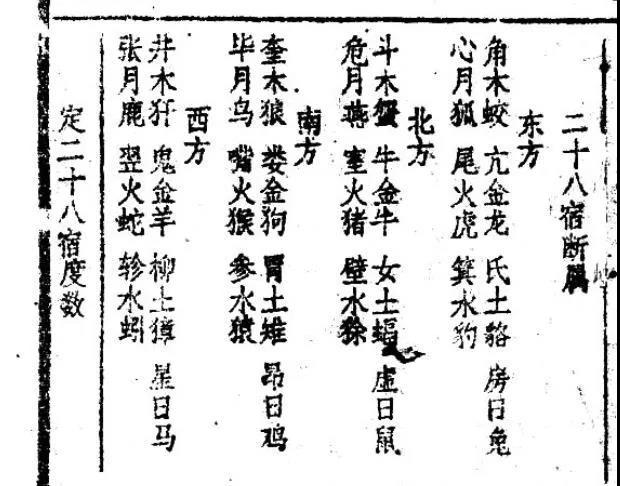 二十八宿断属
东方
角木蛟 亢金龙 氏土貉 房日兔
心月狐 尾火虎 箕水豹
北方
斗木蟹 牛金牛 女土蝠 虚日鼠
危月燕 室火猪 壁水狳
南方
奎木狼 娄金狗 胃土雉 昂日鸡
毕月乌 嘴火猴 参水猿
西方
井木犴 鬼金羊 柳土獐 星日马
张月鹿 翌火蛇 轸水蚓
定二十八宿度数